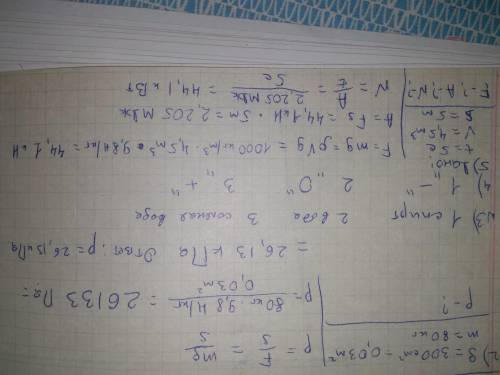 2) S = 300 см² = 0,03 м²
m = 80 кг
p - ?
p = F/S = mg/S
p = 80 кг · 9,8 Н/кг / 0,03 м² = 26133 Па =
= 26,13 кПа Ответ: p = 26,13 кПа
3) 1 спирт 2 вода 3 соленая вода
4) 1 „-“ 2 „0“ 3 „+“
5) Дано:
t = 5c
V = 4,5 м³
S = 5м
F-?, A-?, N-?
F = mg = ρVg = 1000 кг/м³ · 4,5 м³ · 9,8 Н/кг = 44,1 кН
A = Fs = 44,1 кН · 5м = 2,205 МДж
N = A/t = 2,205 МДж / 5c = 44,1 кВт